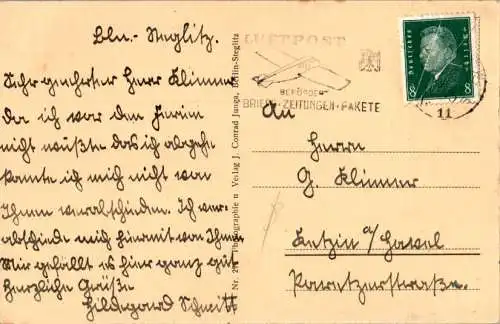 Bln.- Steglitz.
Sehr geehrter Herr Klinner
da ich vor den Ferien
nicht wußte das ich abgehe
konnte ich mich nicht von
Ihnen verabschieden. Ich ver-
abschiede mich hiermit von Ihnen
Mir gefällt es hier ganz gut
Herzliche Grüße
Hildegard Schmitt
Photographie u Verlag J. Conrad Junga, Berlin-Steglitz
Nr.
LUFTPOST
BEFÖRDERT
BRIEFE·ZEITUNGEN·PAKETE
DEUTSCHES REICH
8 8
11
An
Herrn
G. Klinner
Ketzin a/Havel
Paretzerstraße.